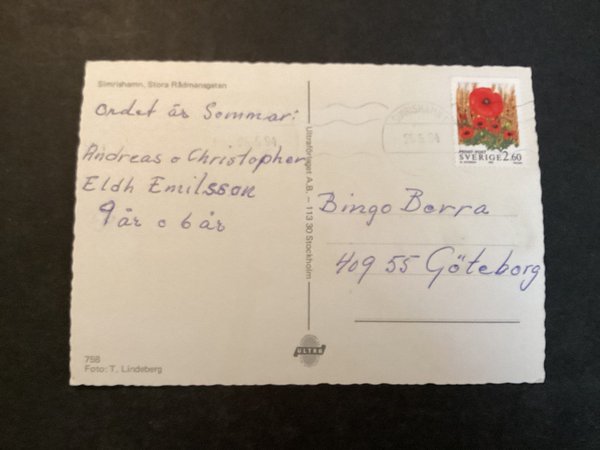 Simrishamn, Stora Rådmansgatan
Ordet är Sommar:
Andreas o Christopher
Eldh Emilsson
9 år o 6 år
758
Foto: T. Lindeberg
Ultraförlaget A.B. – 113 30 Stockholm
ULTRA
SVERIGE 2.60
Bingo Berra
409 55 Göteborg